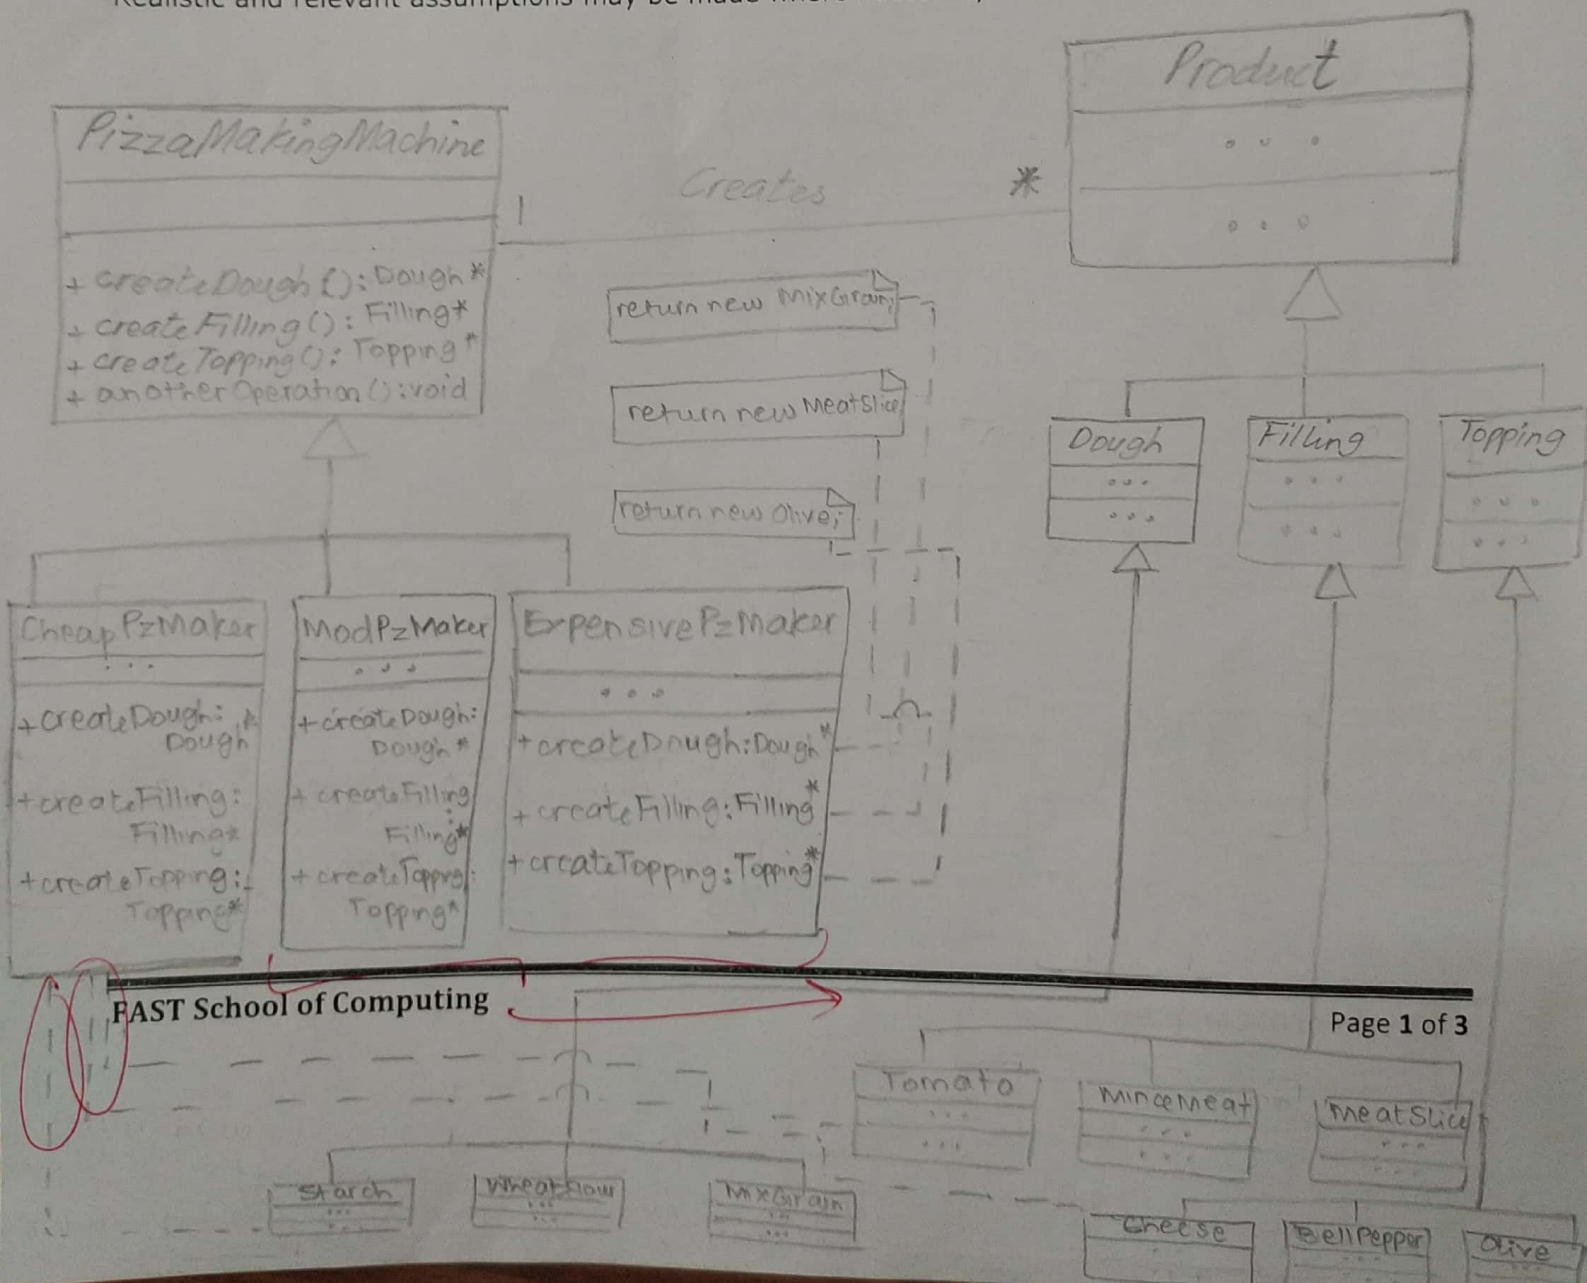 Realistic and relevant assumptions may be made where
Product
PizzaMakingMachine
1
Creates
*
+ createDough(): Dough*
+ createFilling(): Filling*
+ createTopping(): Topping*
+ anotherOperation(): void
return new MixGrain;
return new MeatSlice;
return new Olive;
Dough
Filling
Topping
CheapPzMaker
+createDough:
Dough*
+createFilling:
Filling*
+createTopping:
Topping*
ModPzMaker
+createDough:
Dough*
+createFilling
:
Filling*
+createTopping:
Topping*
ExpensivePzMaker
+createDough:Dough*
+createFilling:Filling*
+createTopping:Topping*
FAST School of Computing
Page 1 of 3
Tomato
MinceMeat
MeatSlice
Starch
WheatFlour
MixGrain
Cheese
BellPepper
Olive